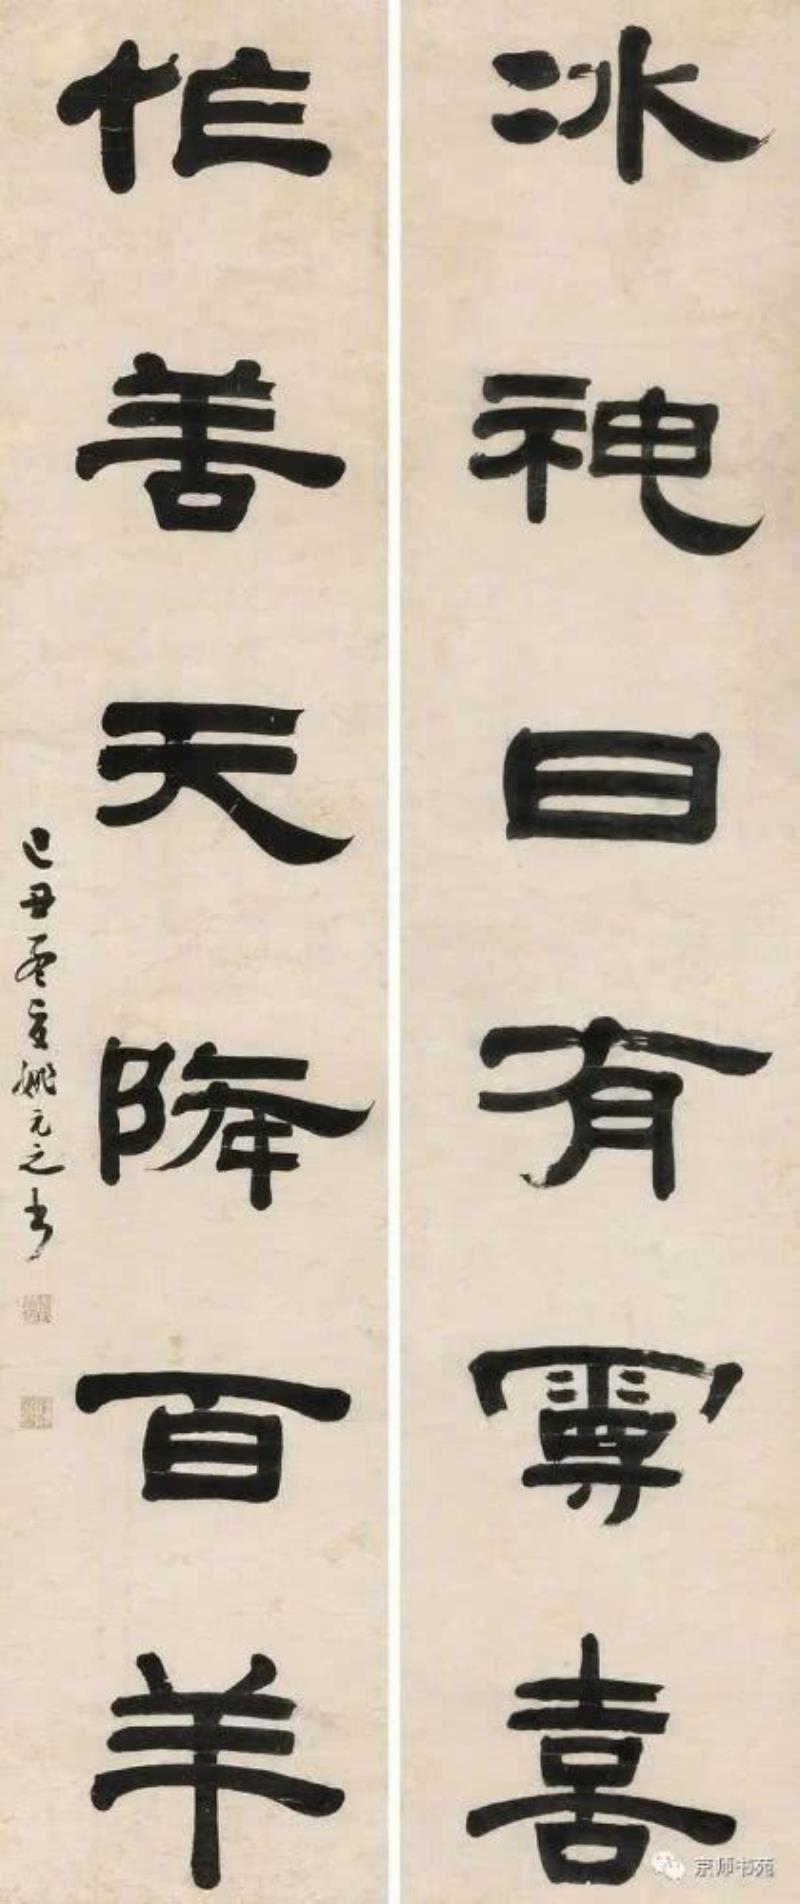 冰神日有喜
作善天降百羊
己丑姚元之书
京师书苑